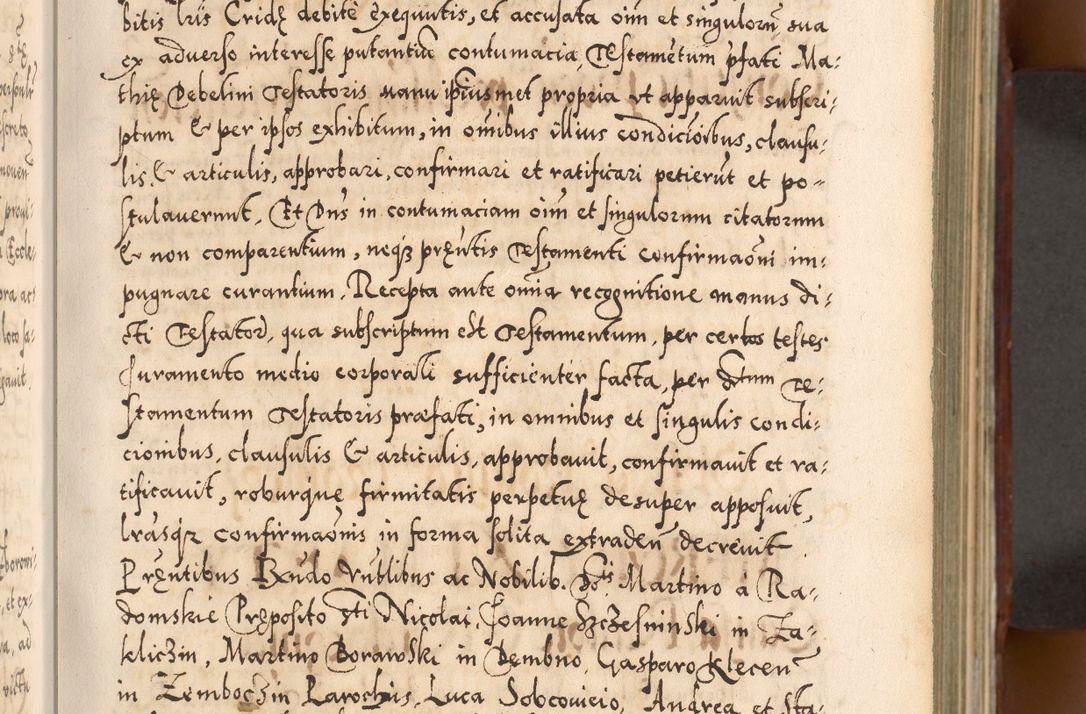 bitis lris Cridę debite exequutis, et accusata oim et singulorũ sua
ex adverso interesse putantiũ contumacia, Testamẽtum pfati Ma-
thię Debelini Testatoris manu ipsiusmet propria vt apparuit subscri-
ptum & per ipsos exhibitum, in omibus illius condicioibus, clausu-
lis & articulis, approbari, confirmari et ratificari petierũt et po-
stulaverunt. Et Dns in contumaciam oim et singulorum citatorum
& non comparentium, neqȝ pręntis Testamenti confirmaoni im-
pugnare curantium, Recepta ante omia recognitione manus di-
cti Testator, qua subscriptum est Testamentum, per certos testes
Juramento medio corporali sufficienter facta, per dtum Te-
stamentum Testatoris præfati, in omnibus et singulis condi-
cionibus, clausulis & articulis, approbavit, confirmavit et ra-
tificavit, roburque firmitatis perpetuę desuper apposuit,
lrasqȝ confirmaonis in forma solita extradeñ decrevit.
Pręntibus Rxndo Vnblibus ac Nobilib. Dñis Martino à Ra-
domskie Pręposito Sti Nicolai, Joanne Szczesninski in Za-
kliczin, Martino Borawski in Dembno, Gasparo Klecen
in Zemboczin Parochis, Luca Sobcovicio, Andrea et Sta-